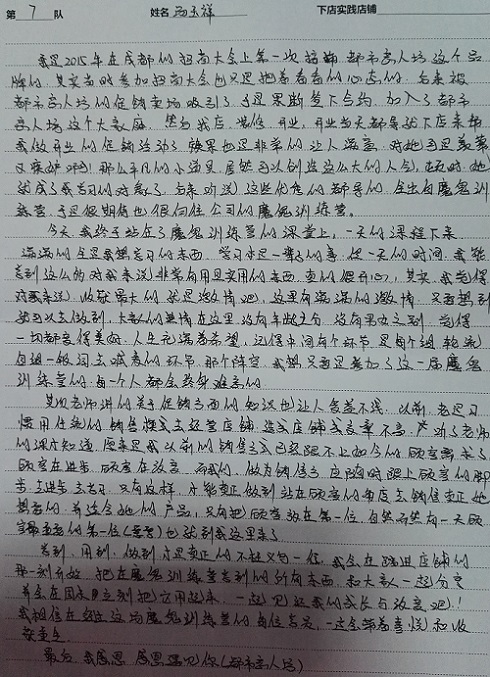 第 7 队 姓名 祥 下店实践店铺
我是2015年在成都的招商大会上第一次接触都市方人坊这个品
牌的,其实当时参加招商大会也只是抱着看看的心态的,后来被
都市 人坊的促销卖场吸引了,于是果断签下合约,加入了都市
人坊这个大家庭。然后我店,装修,开业,开业当天都 导下店来帮
我做开业的促销活动了,效果也是非常的让人满意,对她 是羡慕
又 啊!那么平凡的小 ,居然可以创造这么大的 ,在 时,她
就成了我学习的对象了。后来听说,这些优秀的都导们,全出自魔鬼训
练营,于是很期待也很向往公司的魔鬼训练营。
今天,我终于站在了魔鬼训练营的课堂上,一天的课程下来
满满的全是我想学习的东西,学习本是一 的事,但一天的时间,我能
学到这么的对我来说非常有用且实用的东西,真的很开心,其实,我觉得
对我来说,收获最大的就是激情吧,这里有满满的激情,只要想
就可以去做到,大家的 在这里没有年龄之分,没有男女之别,觉得
一切都变得美好,人生充满着希望,记得中间有个环节是每个组轮流
自组一般词去喊 的环节,那个阵容,我想只要是参加了这一届魔鬼
训练营的每一个人都会终身难忘的
其次老师讲的关于促销方面的知识也让人 不浅,以前,老是习
惯用传统的销售模式去经营店铺,造成店铺成交率不高,产 了老师
的课才知道,原来是我以前的销售方式已经跟不上如今的顾客需求了
顾客在进步,顾客在改变,而我们,做为销售方,应随时跟上顾客的脚
步,去进步,去学习,只有这样,才能真正做到站在顾客的角度去销售真正她
想要的,并适合她的产品,只有把顾客放在第一位,自然而然有一天顾
客 的第一位 也就到我这里来了
学到,用到,做到,才是真正的不枉此 一位,我会在踏进店铺的
那一刻开始,把在魔鬼训练营学到的所有东西,和大家一起分享
并会在周末 立刻把它应用起来,一起见证我的成长与改变吧!
我相信在经过这场魔鬼训练营的每位 ,一定会带着喜悦和收
获
最后,我感恩,感恩遇见你(都市 人坊)